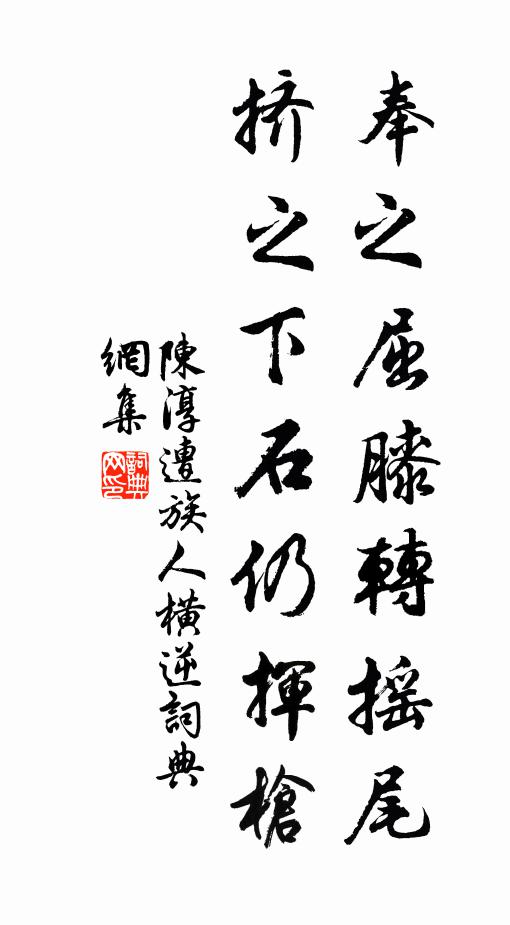 奉之屈膝轉摇尾
挤之下石仍揮槍
陳淳遭族人橫逆詞典
網集
詞典網印